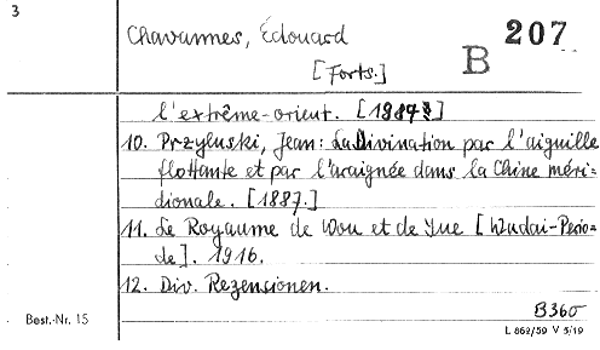 3
Chavannes, Édouard
[Forts.]
B 207
l'extrême-orient. [1887]
10. Przyluski, Jean: La Divination par l'aiguille
flottante et par l'araignée dans la Chine méri=
dionale. [1887.]
11. Le Royaume de Wou et de Yue [Wudai-Perio=
de]. 1916.
12. Div. Rezensionen.
B360
Best.-Nr. 15
L 862/59 V 5/19